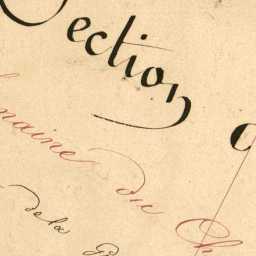 Section
maine du Ch
de la